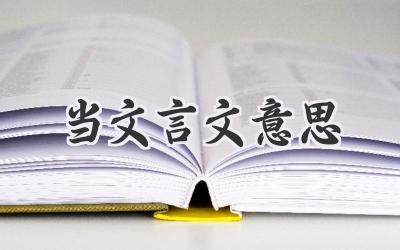 当文言文意思